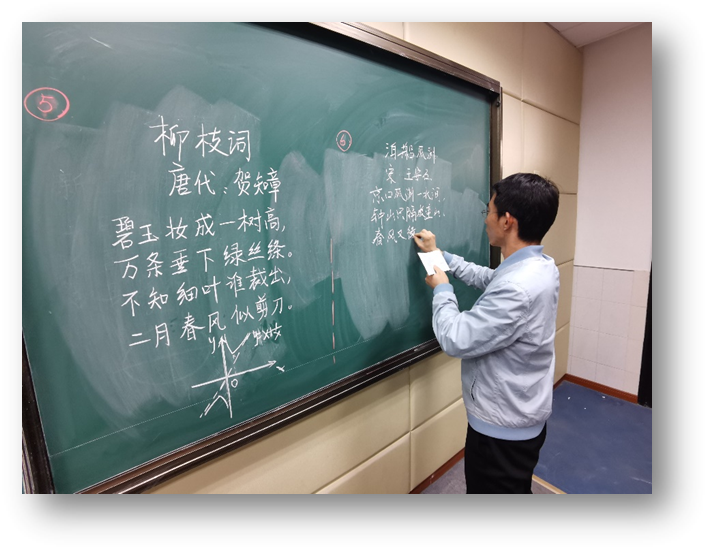 ⑤
柳枝词
唐代:贺知章
碧玉妆成一树高,
万条垂下绿丝绦。
不知细叶谁裁出,
二月春风似剪刀。
y
x
O
⑥
泊船瓜洲
宋 王安石
京口瓜洲一水间,
钟山只隔数重山。
春风又绿